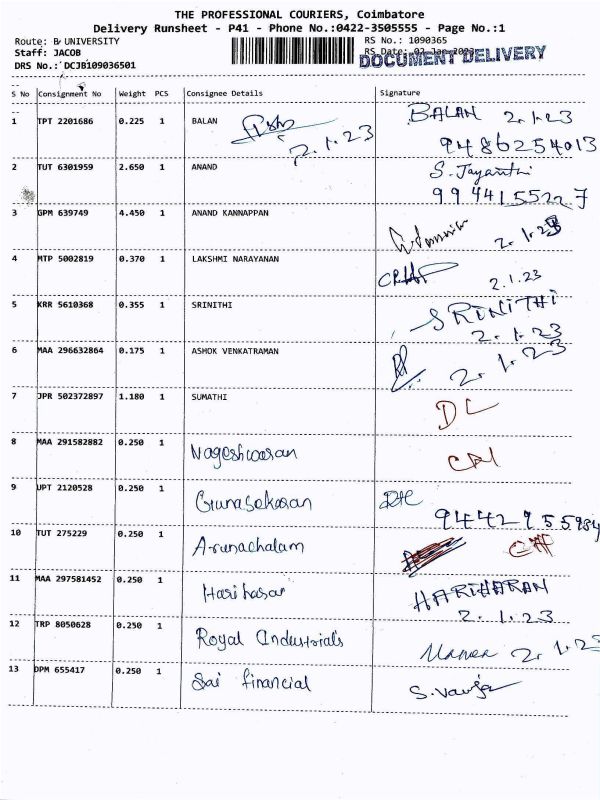 THE PROFESSIONAL COURIERS, Coimbatore
Delivery Runsheet - P41 - Phone No.:0422-3505555 - Page No.:1
Route: B UNIVERSITY
RS No.: 1090365
Staff: JACOB
RS Date: 02 Jan 2023
DOCUMENT DELIVERY
DRS No.: DCJB109036501
S No Consignment No Weight PCS Consignee Details Signature
1 TPT 2201686 0.225 1 BALAN 2.1.23 BALAN 2.1.23
9486254013
2 TUT 6301959 2.650 1 ANAND S. Jayanthi
9944155227
3 GPM 639749 4.450 1 ANAND KANNAPPAN 2.1.23
4 MTP 5002819 0.370 1 LAKSHMI NARAYANAN 2.1.23
5 KRR 5610368 0.355 1 SRINITHI SRINITHI
2.1.23
6 MAA 296632864 0.175 1 ASHOK VENKATRAMAN 2.1.23
7 JPR 502372897 1.180 1 SUMATHI DL
8 MAA 291582882 0.250 1 Nageshwaran
9 UPT 2120528 0.250 1 Gunasekaran
9442955984
10 TUT 275229 0.250 1 Arunachalam
11 MAA 297581452 0.250 1 Hariharan HARIHARAN
2.1.23
12 TRP 8050628 0.250 1 Royal Industrials 2.1.23
13 DPM 655417 0.250 1 Sai financial